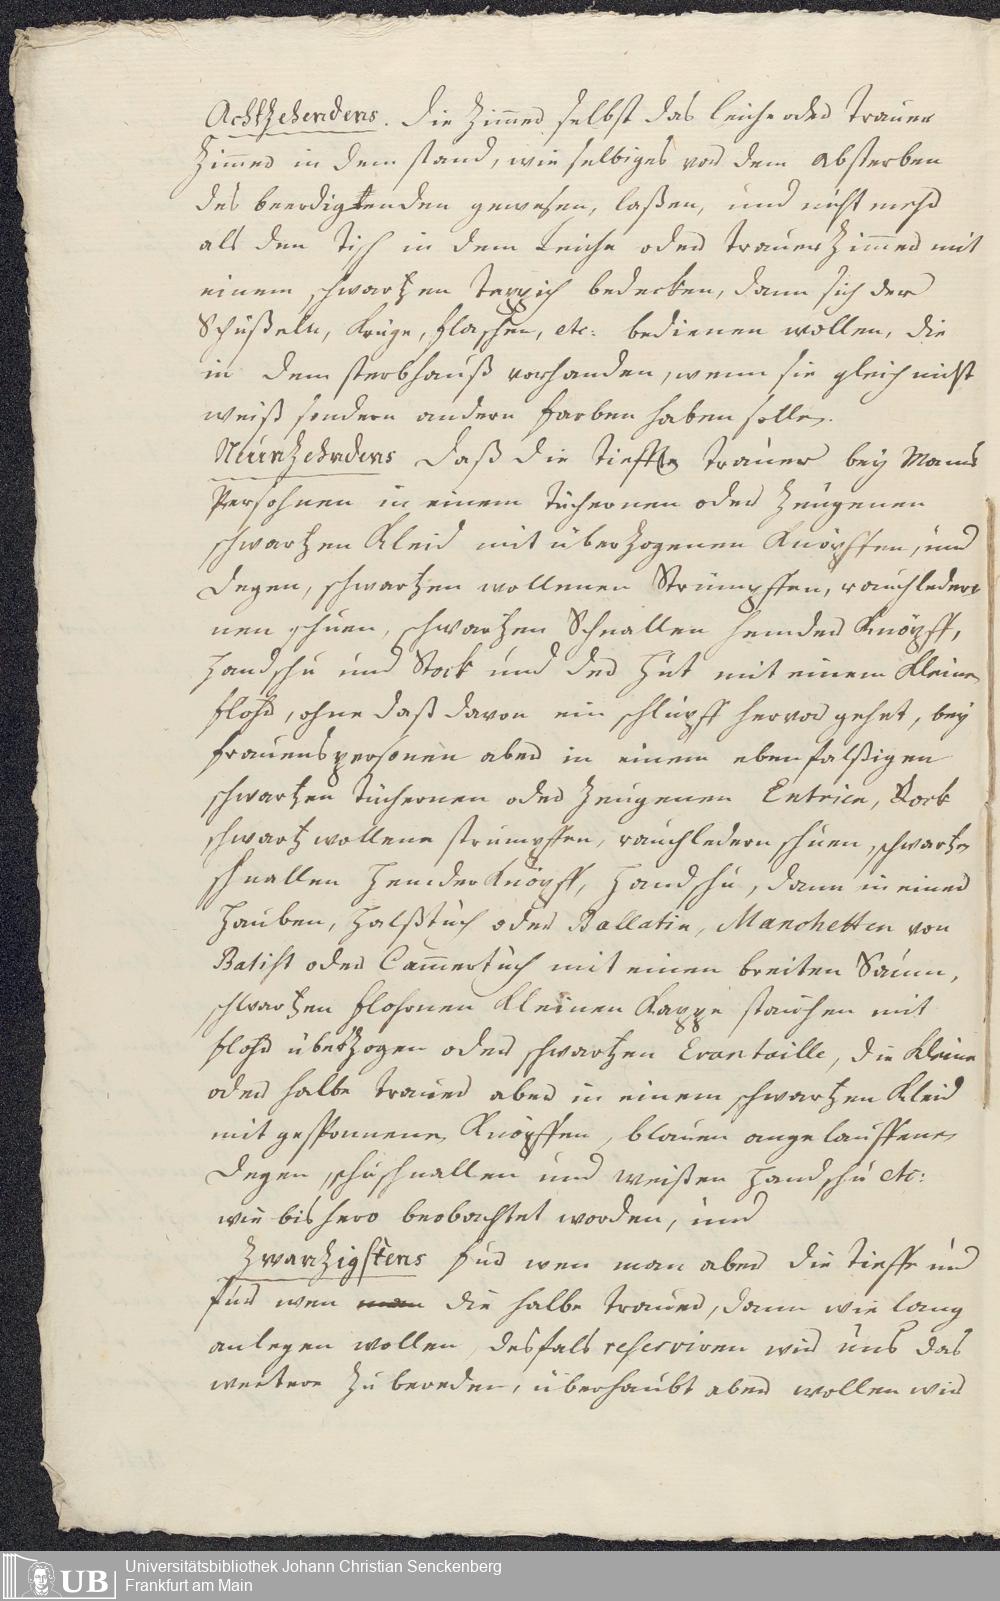 Achtzehendens. die Zimmer selbst das leich oder Trauer
Zimmer in dem stand, wie selbiges vor dem absterben
des beerdigtenden gewesen, laßen, und nicht mehr
als den Tisch in dem Leiche oder Trauer Zimmer mit
einem schwartzen Teppich bedecken, dann sich der
Schüßeln, Krüge, flaschen, etc: bedienen wollen, die
in dem sterbhauß vorhanden, wenn sie gleich nicht
weiß sondern andern farben haben sollen.
Neünzehndens daß die tieffste trauer bey Manns
Persohnen in einem tüchernen oder Zeugenen
schwartzen Kleid mit überzogenen Knöpffen, und
degen, schwartzen wollenen Strümpffen, rauchleder-
nen schuen, schwartzen Schnallen hemder Knöpff,
handschu und Stock und der Hut mit einem Kleinen
flohr, ohne daß davon ein schlupff hervor gehet, bey
frauenspersonen aber in einem ebenfalßigen
schwartzen tüchernen oder Zeugenen Entrien, Rock
schwartz wollene strümpffen, rauchledern schuen, schwartzen
schnallen Hemder Knöpff, Handschu, dann in einer
Hauben, Halßtuch oder Pallatin, Manchetten von
Batist oder Cammertuch mit einen breiten Saum,
schwartzen flohrnen Kleinen Kappe stauchen mit
flohr überzogen oder schwartzen Evantaille, die Kleine
oder halbe trauer aber in einem schwartzen Kleid
mit gesponnenen Knöpffen, blauen angelauffenen
degen, schuschnallen und weißen Handschu etc:
wie bishero beobachtet worden, und
Zwanzigstens für wen man aber die tieffe und
für wen man die halbe trauer, dann wie lang
anlegen wollen, desfals reserviren wir uns das
weitere zu bereden, überhaubt aber wollen wir
UB
Universitätsbibliothek Johann Christian Senckenberg
Frankfurt am Main